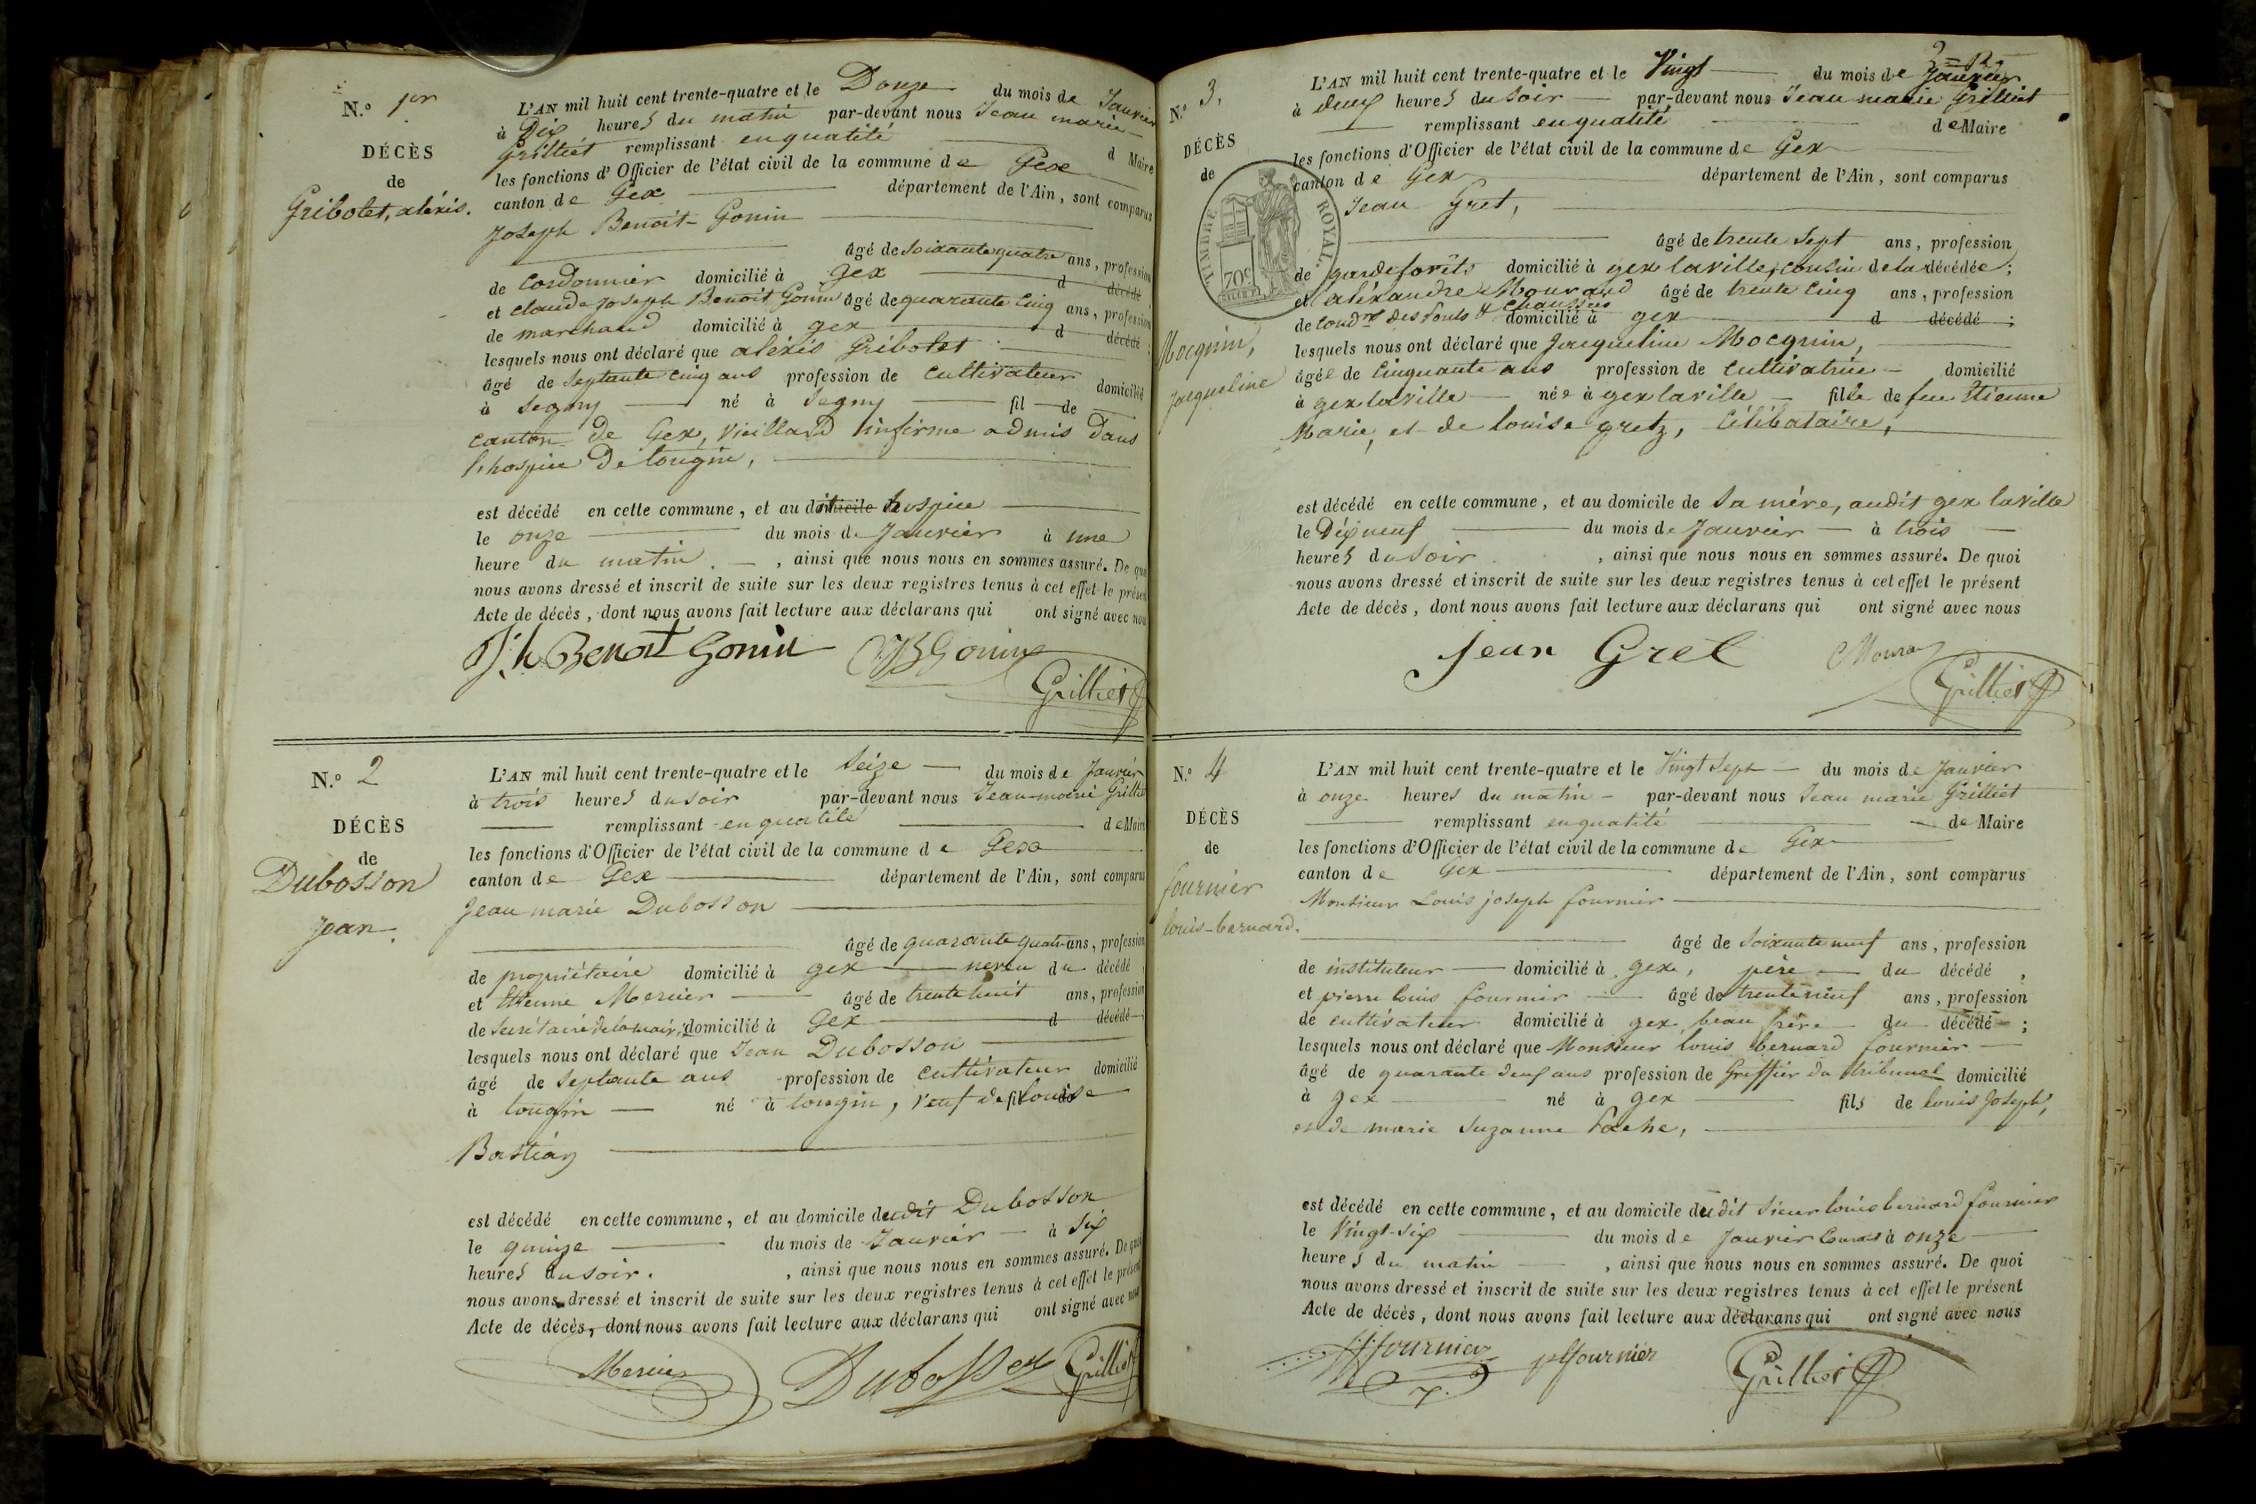 N.° 1er
DÉCÈS
de
Gribolet, aléxis.
L'AN mil huit cent trente-quatre et le Douze du mois de Janvier
à Dix heures du matin par-devant nous Jean marie
Grilliet remplissant en qualité d Maire
les fonctions d'Officier de l'état civil de la commune de Gex
canton de Gex département de l'Ain, sont comparus
Joseph Benoit-Gonin
âgé de soixante quatre ans, profession
de Cordonnier domicilié à gex d décédé
et claude Joseph Benoit Gonin âgé de quarante cinq ans, profession
de marchand domicilié à gex d décédé
lesquels nous ont déclaré que aléxis Gribolet
âgé de septante cinq ans profession de cultivateur domicilié
à Segny né à Segny fil de
canton de Gex, vieillard infirme admis dans
l'hospice de tougin,
est décédé en cette commune, et au domicile hospice
le onze du mois de Janvier à une
heure du matin. , ainsi que nous nous en sommes assuré. De quoi
nous avons dressé et inscrit de suite sur les deux registres tenus à cet effet le présent
Acte de décès, dont nous avons fait lecture aux déclarans qui ont signé avec nous
Jh Benoit Gonin CJBGonin
Grilliet
N.° 2
DÉCÈS
de
Dubosson
Jean.
L'AN mil huit cent trente-quatre et le Seize du mois de Janvier
à trois heures du soir par-devant nous Jean-marie Grilliet
remplissant en qualité de Maire
les fonctions d'Officier de l'état civil de la commune de Gex
canton de Gex département de l'Ain, sont comparus
Jean marie Dubosson
âgé de quarante quatre ans, profession
de propriétaire domicilié à gex neveu du décédé,
et Etienne Mercier âgé de trente huit ans, profession
de Secrétaire de la mairie domicilié à Gex d décédé;
lesquels nous ont déclaré que Jean Dubosson
âgé de septante ans profession de cultivateur domicilié
à tougin né à tougin, veuf de fil louise
Bastian
est décédé en cette commune, et au domicile dudit Dubosson
le quinze du mois de Janvier à six
heures du soir. , ainsi que nous nous en sommes assuré. De quoi
nous avons dressé et inscrit de suite sur les deux registres tenus à cet effet le présent
Acte de décès, dont nous avons fait lecture aux déclarans qui ont signé avec nous
Mercier Dubosson Grilliet
N.° 3.
DÉCÈS
de
Mocquin,
Jacqueline
TIMBRE ROYAL
70c
L'AN mil huit cent trente-quatre et le Vingt du mois de Janvier
à deux heures du soir par-devant nous Jean marie Grilliet
remplissant en qualité de Maire
les fonctions d'Officier de l'état civil de la commune de Gex
canton de Gex département de l'Ain, sont comparus
Jean Gret,
âgé de trente sept ans, profession
de garde forêts domicilié à gex laville, cousin de la décédée;
et aléxandre Mourand âgé de trente cinq ans, profession
de Condr des Ponts & Chaussées domicilié à gex d décédé;
lesquels nous ont déclaré que Jacqueline Mocquin,
âgée de Cinquante ans profession de cultivatrice domicilié
à gex laville née à gex laville fille de feu Etienne
Marie, et de louise gretz, Célibataire,
est décédé en cette commune, et au domicile de sa mère, audit gex laville
le Dix neuf du mois de Janvier à trois
heures du soir , ainsi que nous nous en sommes assuré. De quoi
nous avons dressé et inscrit de suite sur les deux registres tenus à cet effet le présent
Acte de décès, dont nous avons fait lecture aux déclarans qui ont signé avec nous
Jean Gret
Grilliet
N.° 4
DÉCÈS
de
fournier
louis-bernard.
L'AN mil huit cent trente-quatre et le Vingt sept du mois de Janvier
à onze heures du matin par-devant nous Jean marie Grilliet
remplissant en qualité de Maire
les fonctions d'Officier de l'état civil de la commune de Gex
canton de Gex département de l'Ain, sont comparus
Monsieur Louis joseph fournier
âgé de soixante neuf ans, profession
de instituteur domicilié à gex, père du décédé,
et pierre louis fournier âgé de trente neuf ans, profession
de cultivateur domicilié à gex beau frère du décédé;
lesquels nous ont déclaré que Monsieur louis bernard fournier
âgé de quarante deux ans profession de Greffier du tribunal domicilié
à gex né à gex fils de louis Joseph,
et de marie Suzanne
est décédé en cette commune, et au domicile dudit sieur louis bernard fournier
le Vingt-six du mois de Janvier Courant à onze
heures du matin , ainsi que nous nous en sommes assuré. De quoi
nous avons dressé et inscrit de suite sur les deux registres tenus à cet effet le présent
Acte de décès, dont nous avons fait lecture aux déclarans qui ont signé avec nous
fournier plfournier Grilliet